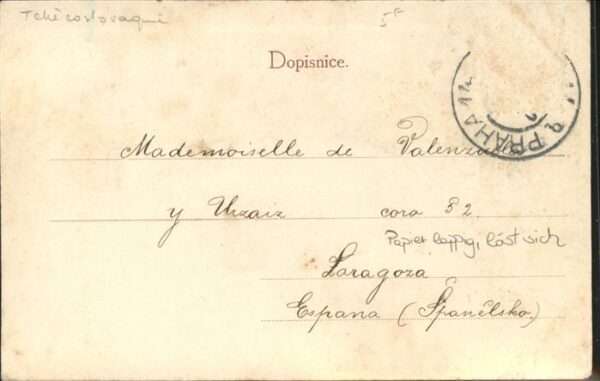 Tchécoslovaquie
5F
Dopisnice.
PRAHA
Mademoiselle de Valenzuela
y Urzaiz coro 32.
Papier lappig, löst sich
Zaragoza
Espana (Španělsko)